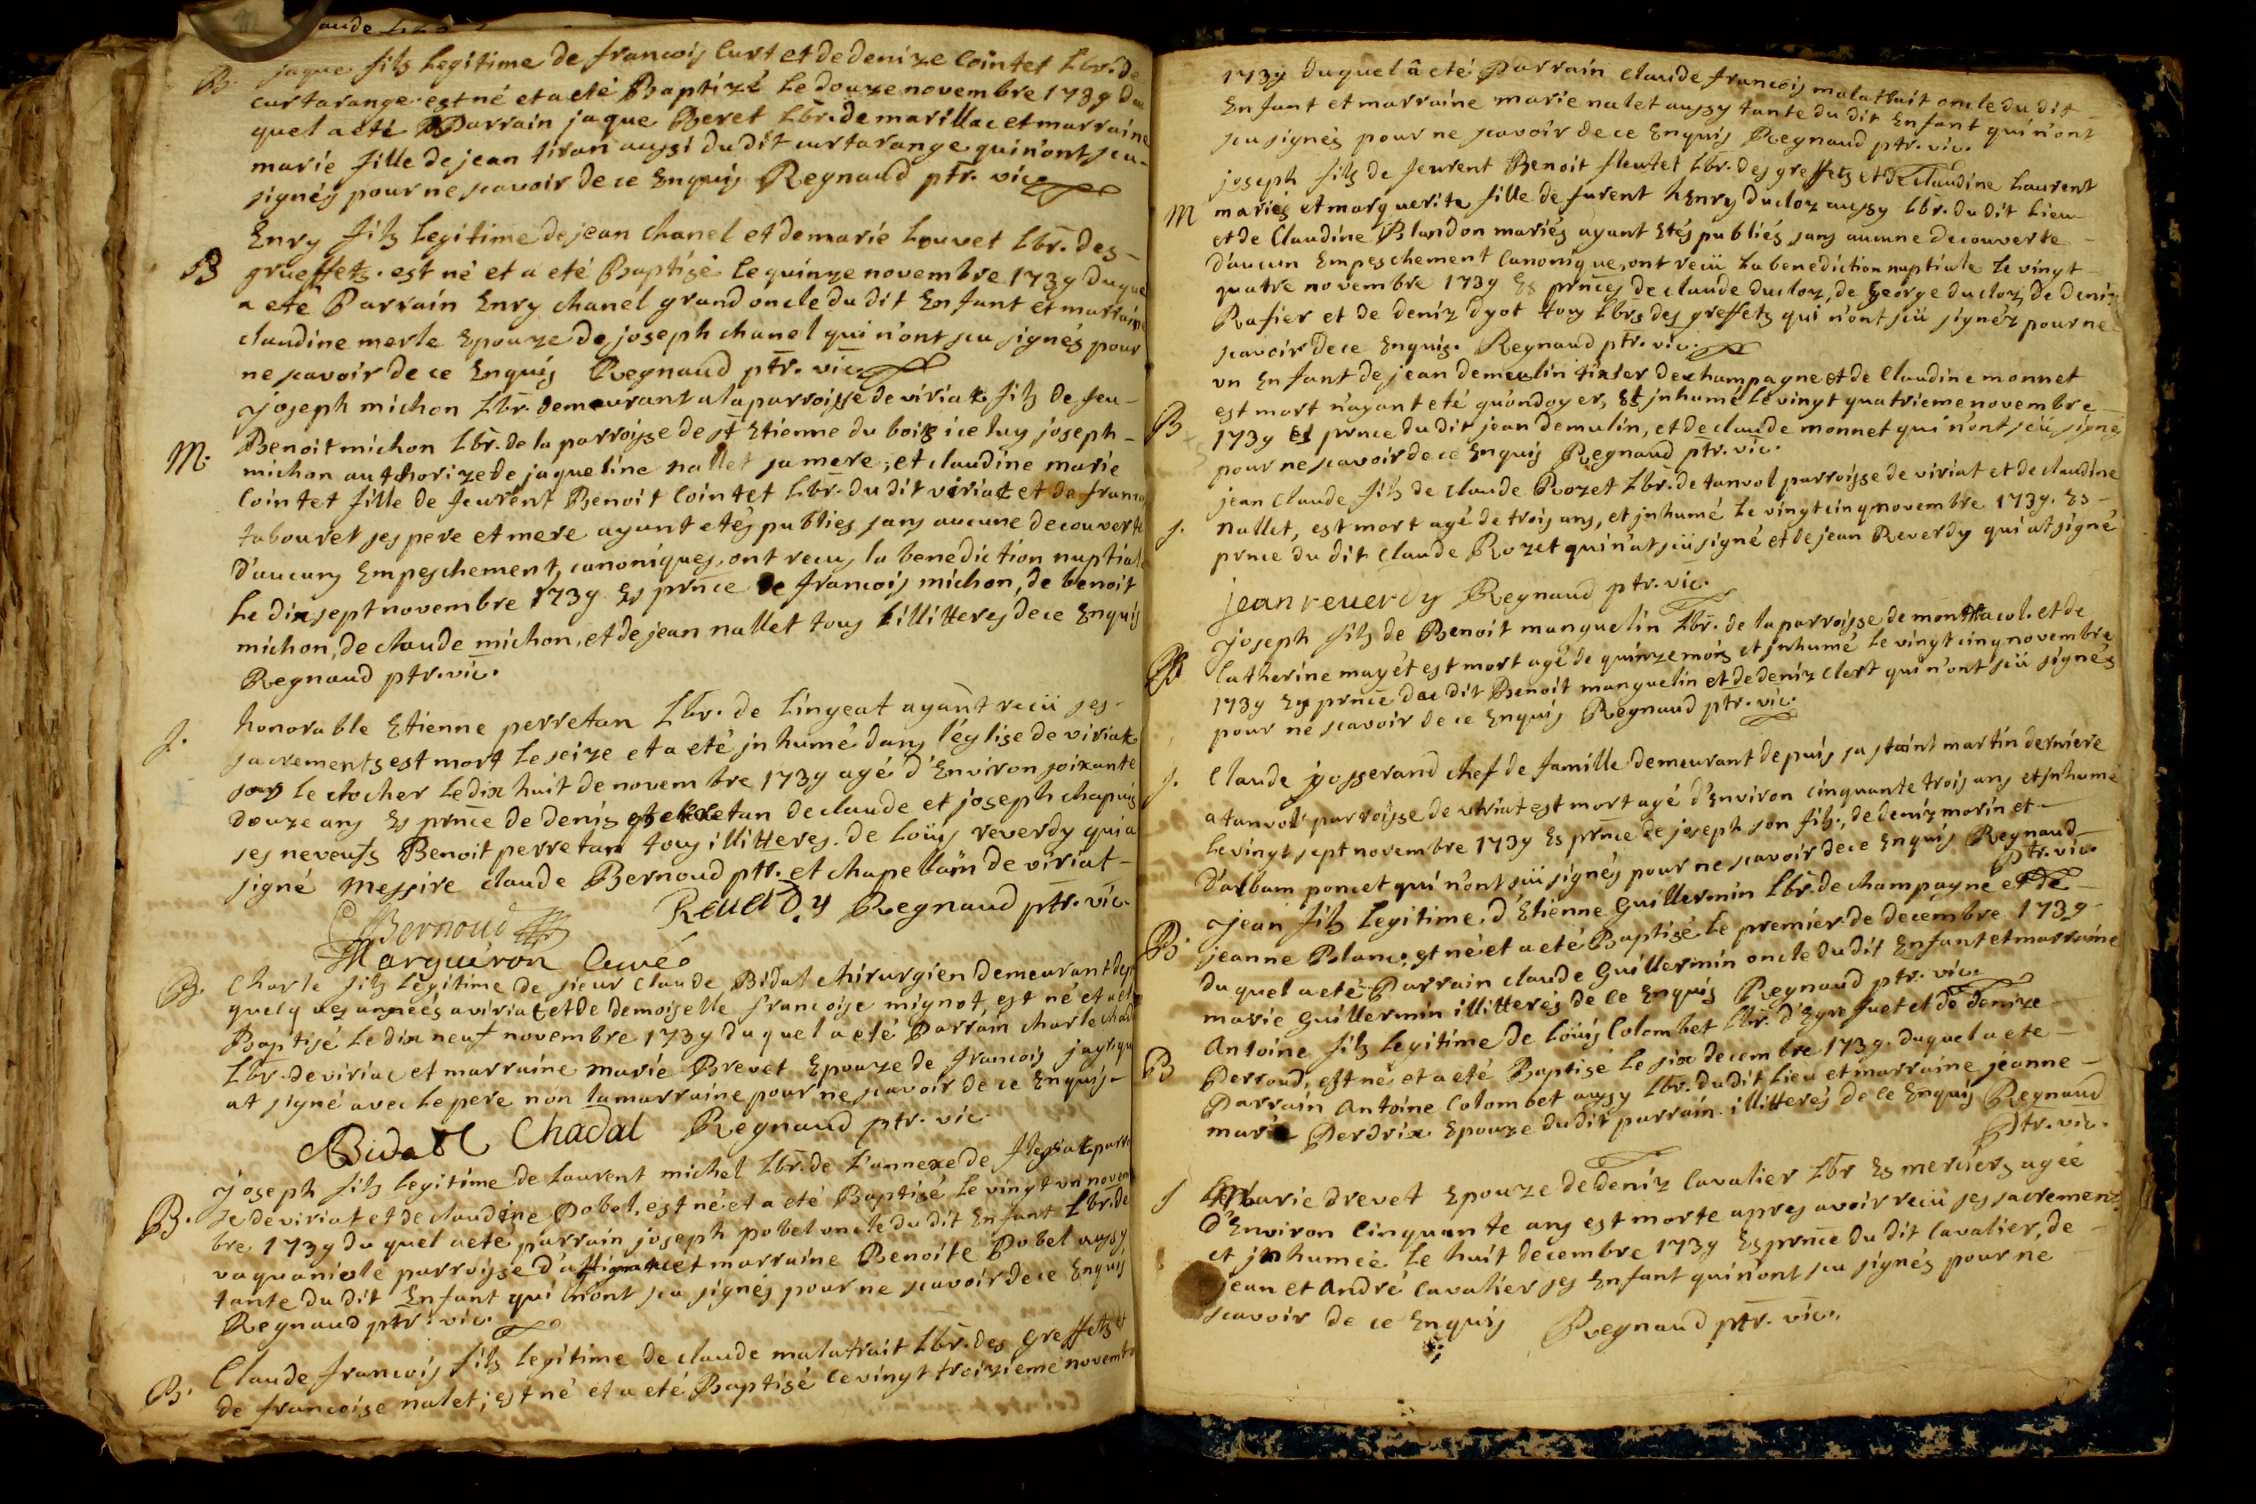 aude
B. jaque filz legitime de francois Curt et de denize Cointet Lbr. de
curtarange. est né et a eté Baptizé le douze novembre 1739 du
quel a eté Parrain jaque Beret Lbr. de marillac et marraine
marie fille de jean tiran aussi du dit curtarange qui n'ont sçu
signés pour ne scavoir de ce Enquis Regnaud ptr. vic.
Enry filz legitime de jean Chanel et de marie Louvet Lbr. des
B grueffetz. est né et a eté Baptisé le quinze novembre 1739 duque
a eté Parrain Enry chanel grand oncle du dit Enfant et marraine
claudine merle Epouze de joseph chanel qui n'ont sçu signés pour
ne scavoir de ce Enquis Regnaud ptr. vic.
joseph michon Lbr. demeurant a la parroisse de viriat filz de feu
M. Benoit michon Lbr. de la parroisse de st Etienne du bois iceluy joseph
michon authorize de jaqueline nallet sa mere, et claudine marie
Cointet fille de feurent Benoit Cointet Lbr. du dit viriat et de franco
tabouret ses pere et mere ayant etés publies sans aucune decouverte
d'aucuns Empeschement, canoniques, ont recus la benediction nuptiale
le dix sept novembre 1739 Es prnce de francois michon, de benoit
michon, de claude michon, et de jean nallet tous illitteres de ce Enquis
Regnaud ptr. vic.
j. honorable Etienne perretan Lbr. de Lingeat ayant recü ses
sacrements est mort le seize et a eté jnhumé dans l'église de viriat
sous le clocher le dix huit de novembre 1739 agé d'Environ soixante
douze ans Es prnce de denis perretan de claude et joseph chapuis
ses neveus Benoit perretan tous illitteres. de Loüis reverdy qui a
signé messire claude Bernoud ptr. et chapellain de viriat
CBernoud Reverdy Regnaud ptr. vic.
Marguiron Curé
B. Charle filz legitime de sieur Claude Bidal chirurgien demeurant dep
quelques années a viriat et de demoiselle francoise mignot, est né et a eté
Baptisé le dix neuf novembre 1739 duquel a eté Parrain charle chad
Lbr. de viriac et marraine marie Brevet Epouze de francois qui
at signé avec le pere non la marraine pour ne scavoir de ce Enquis
Bidal Chadal Regnaud ptr. vic
joseph filz legitime de Laurent michel Lbr. de l'annexe de fleyriat parro
B. se de viriat et de claudine Pobel, est né et a eté Baptisé le vingt un novem
bre 1739 du quel a eté parrain joseph pobel oncle du dit Enfant Lbr. de
vaquaniole parroisse d'attignat et marraine Benoite Pobel aussy
tante du dit Enfant qui n'ont sçu signés pour ne scavoir de ce Enquis
Regnaud ptr. vic.
Claude francois filz legitime de claude malatrait Lbr. des greffetz et
B. de francoise nalet; est né et a eté Baptisé le vingt troizieme novemb
1739 duquel â eté Parrain claude francois malatrait oncle du dit
Enfant et marraine marie nalet aussy tante du dit Enfant qui n'ont
sçu signés pour ne scavoir de ce Enquis Regnaud ptr. vic.
joseph filz de feurent Benoit fleutet Lbr. des greffetz et de claudine Laurent
M mariés et marguerite fille de furent hEnry ducloz aussy Lbr. du dit Lieu
et de Claudine Blandon mariés ayant Etés publiés sans aucune decouverte
d'aucun Empeschement Canonique, ont recü la benediction nuptiale le vingt
quatre novembre 1739 Es prnces de claude ducloz, de george ducloz, de deniz
Rafier et de deniz dyot tous Lbrs des greffetz qui n'ont scü signéz pour ne
scavoir de ce Enquis. Regnaud ptr. vic.
un Enfant de jean demeulin tixier de champagne et de Claudine monnet
est mort n'ayant eté qu'ondoyer, Et jnhumé le vingt quatrieme novembre
B 1739 Es prnce du dit jean demulin, et de claude monnet qui n'ont sçü signés
pour ne scavoir de ce Enquis Regnaud ptr. vic.
jean claude filz de claude Rozet Lbr. de tanvol parroisse de viriat et de claudine
j. nallet, est mort agé de trois ans, et jnhumé le vingt cinq novembre 1739. Es
prnce du dit Claude Rozet qui n'at sçü signé et de jean Reverdy qui at signé
jean reverdy Regnaud ptr. vic.
joseph filz de Benoit manguelin Lbr. de la parroisse de monttracol. et de
B Catherine mayét est mort agé de quinze mois et jnhumé le vingt cinq novembre
1739 Es prnce du dit Benoit manguelin et de deniz Clert qui n'ont sçü signés
pour ne scavoir de ce Enquis Regnaud ptr. vic.
j. Claude josserand chef de famille demeurant depuis sa staint martin derniere
a tanvol parroisse de viriat est mort agé d'Environ cinquante trois ans et jnhumé
le vingt sept novembre 1739 Es prnce de joseph son filz, de deniz morin et
d'alban poncet qui n'ont sçü signés pour ne scavoir de ce Enquis Regnaud
ptr. vic.
jean filz legitime. d'Etienne Guillermin Lbr. de champagne et de
B. jeanne Blanc, est né et a eté Baptisé le premier de decembre 1739
du quel a eté Parrain claude Guillermin oncle du dit Enfant et marraine
marie Guillermin illitterés de ce Enquis Regnaud ptr. vic.
Antoine filz legitime de Loüis Colombet Lbr. d'Egrefuet et de denize
B Perroud, est né et a eté Baptisé le six decembre 1739. duquel a ete
Parrain Antoine Colombet aussy Lbr. du dit Lieu et marraine jeanne
marie Perdrix Epouze du dit parrain. illitterés de ce Enquis Regnaud
Ptr. vic.
j marie drevet Epouze de deniz Cavalier Lbr Es merciers agée
d'Environ Cinquante ans est morte apres avoir recü ses sacrements
et jnhumée le huit decembre 1739 Es prnce du dit Cavalier, de
jean et andré Cavalier ses Enfant qui n'ont sçu signés pour ne
scavoir de ce Enquis Regnaud ptr. vic.